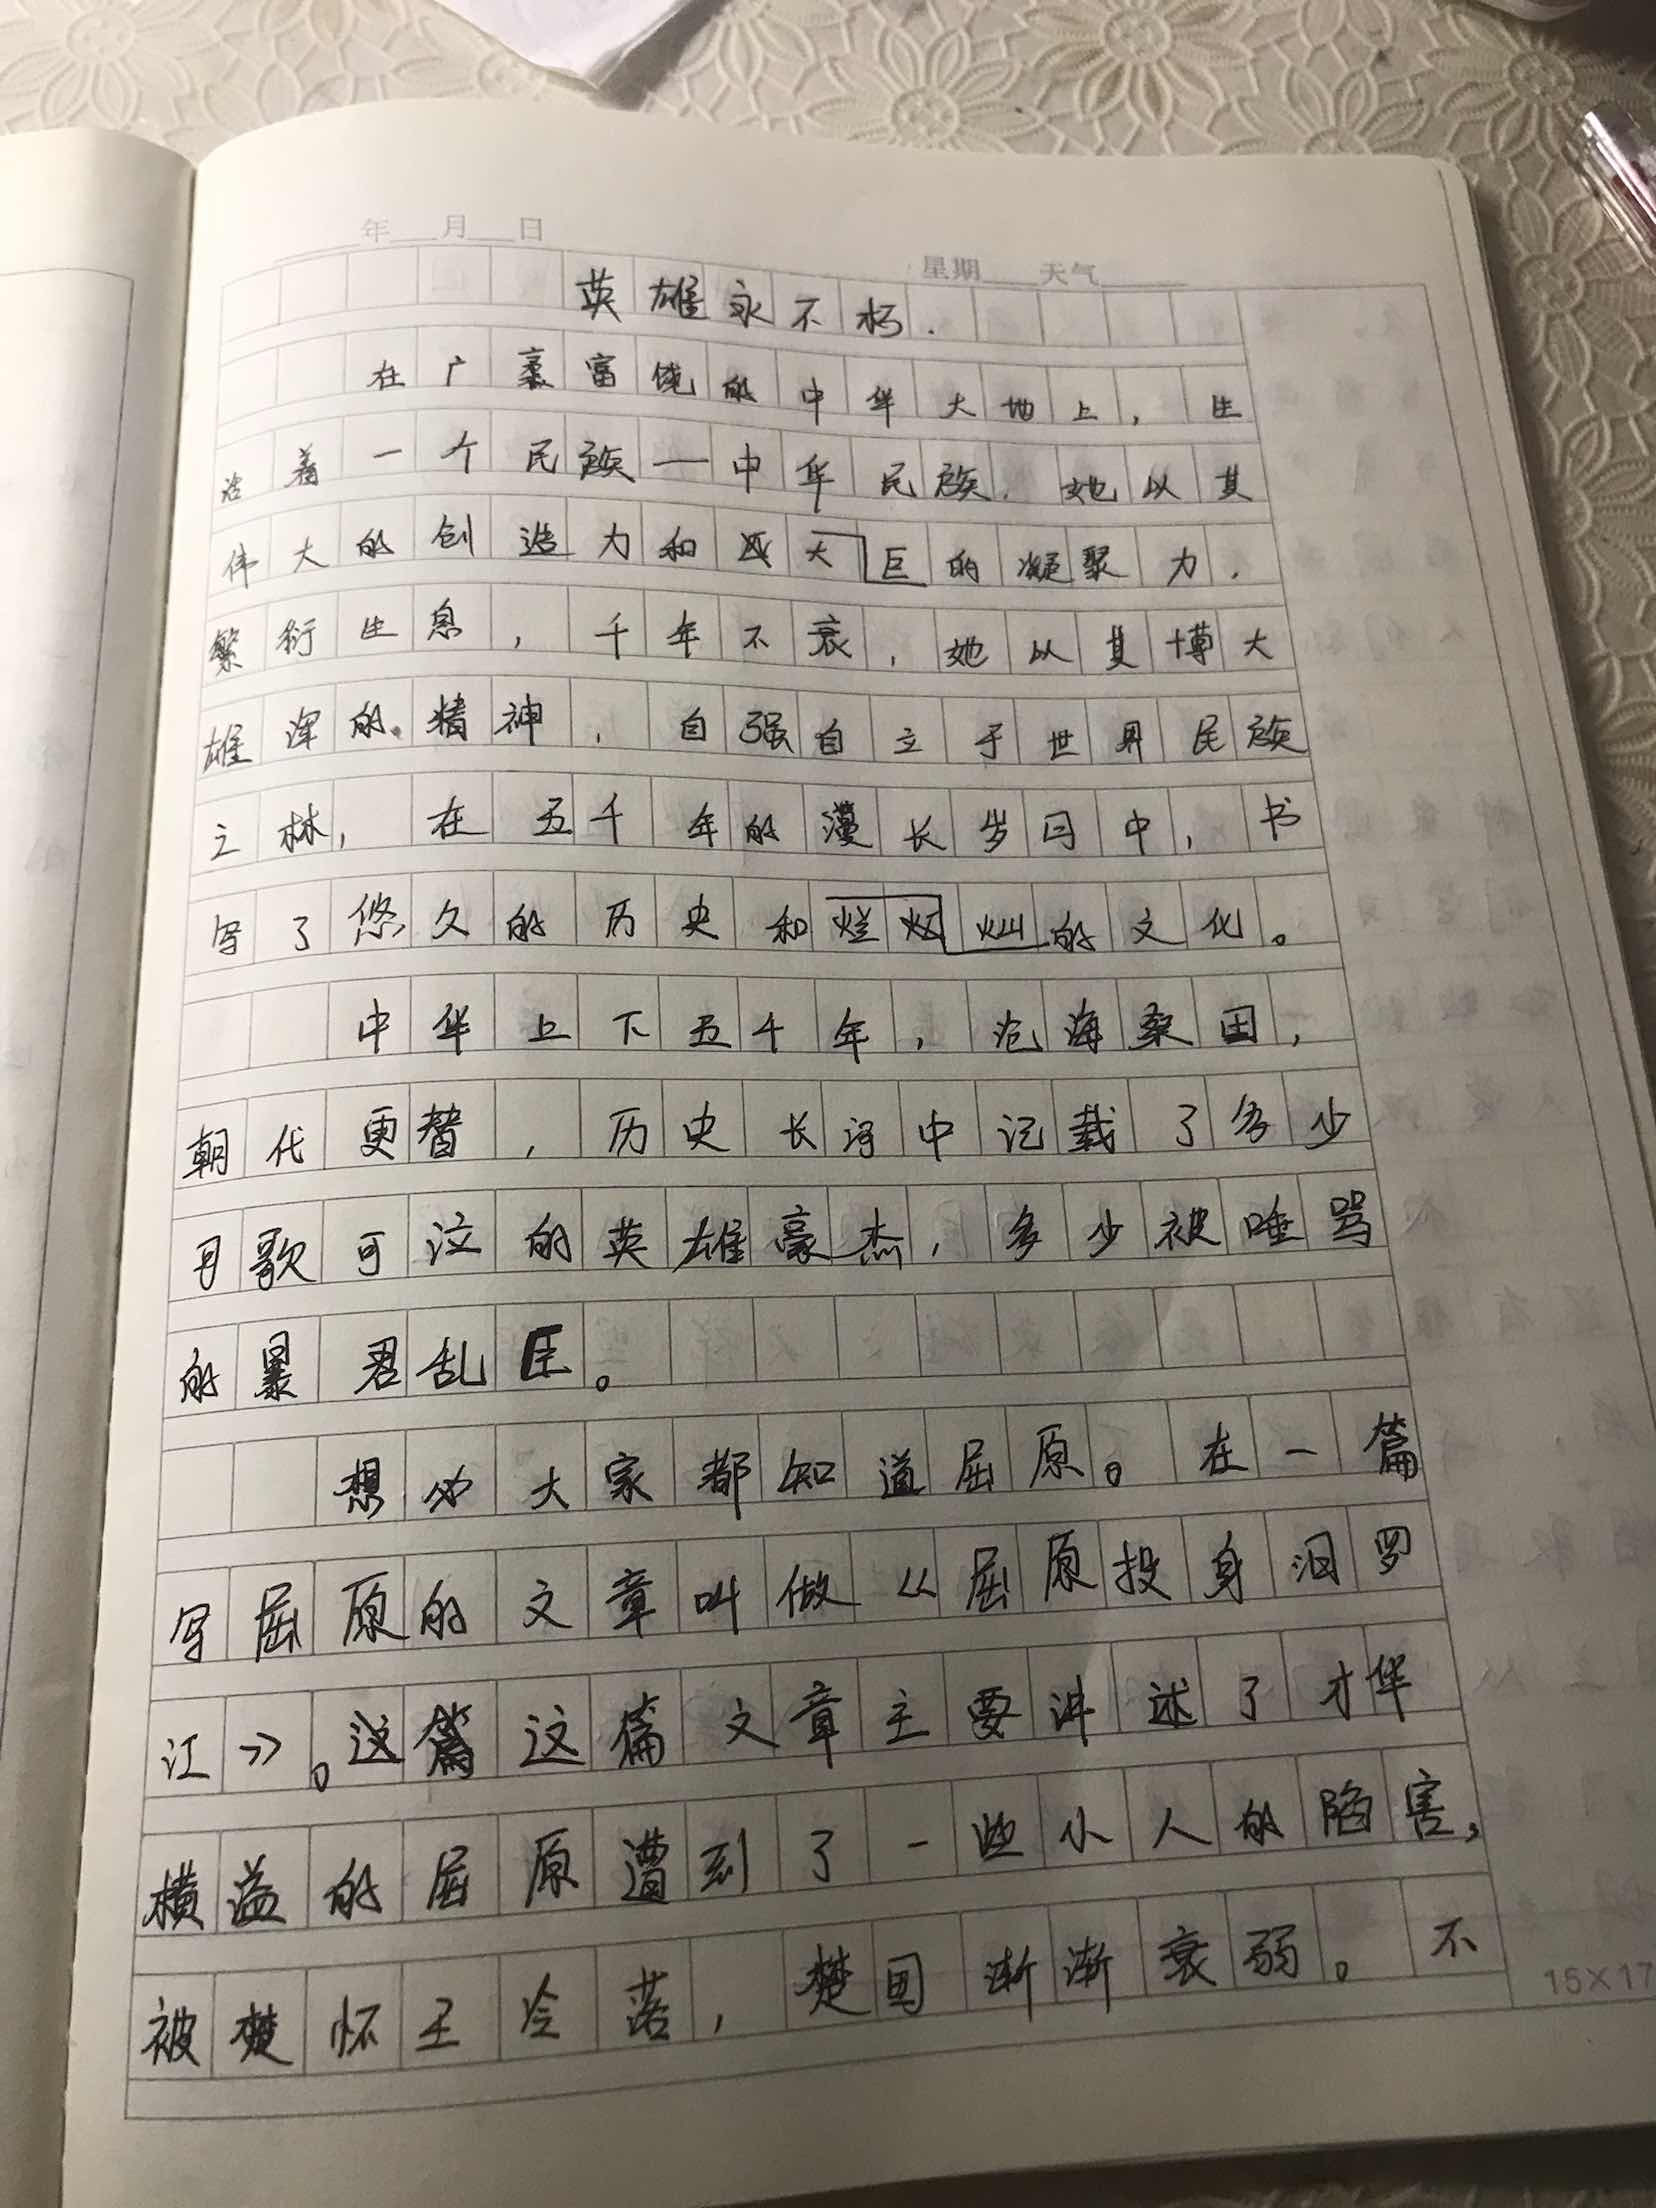 年 月 日
星期 天气
英雄永不朽.
在广袤富饶的中华大地上,生
活着一个民族—中华民族.她以其
伟大的创造力和大巨的凝聚力,
繁衍生息,千年不衰,她以其博大
雄浑的精神,自强自立于世界民族
之林,在五千年的漫长岁月中,书
写了悠久的历史和烂灿的文化。
中华上下五千年,沧海桑田,
朝代更替,历史长河中记载了多少
可歌可泣的英雄豪杰,多少被唾骂
的暴君乱臣。
想必大家都知道屈原。在一篇
写屈原的文章叫做《屈原投身汨罗
江》。这篇文章主要讲述了才华
横溢的屈原遭到了一些小人的陷害,
被楚怀王冷落,楚国渐渐衰弱。不
15×17